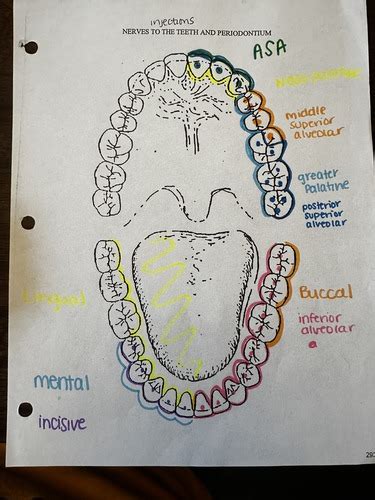 injections
NERVES TO THE TEETH AND PERIODONTIUM
ASA
middle
superior
alveolar
greater
palatine
posterior
superior
alveolar
lingual
Buccal
inferior
alveolar
mental
incisive